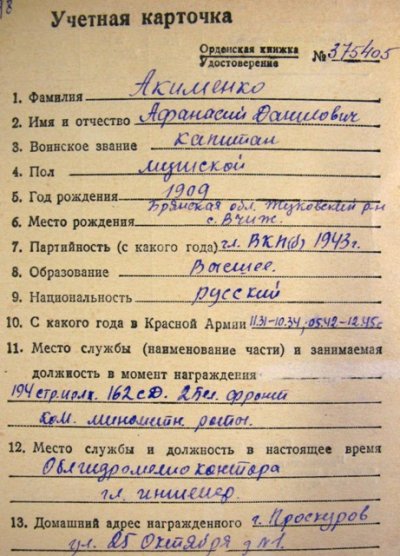 98
Учетная карточка
Орденская книжка
Удостоверение №375405
1. Фамилия Акименко
2. Имя и отчество Афанасий Данилович
3. Воинское звание капитан
4. Пол мужской
5. Год рождения 1909
Брянская обл. Жуковский р-н
6. Место рождения с. Вчиж.
7. Партийность (с какого года) чл. ВКП(б) 1943 г.
8. Образование Высшее.
9. Национальность русский
10. С какого года в Красной Армии 11.31-10.34, 05.42-12.45 г
11. Место службы (наименование части) и занимаемая
должность в момент награждения
194 стр. полк. 162 с.д. фронт
Ком. минометн. роты.
12. Место службы и должность в настоящее время
Облгидромелиоконтора
гл. инженер.
13. Домашний адрес награжденного г. Проскуров
ул. 25 Октября д №1.